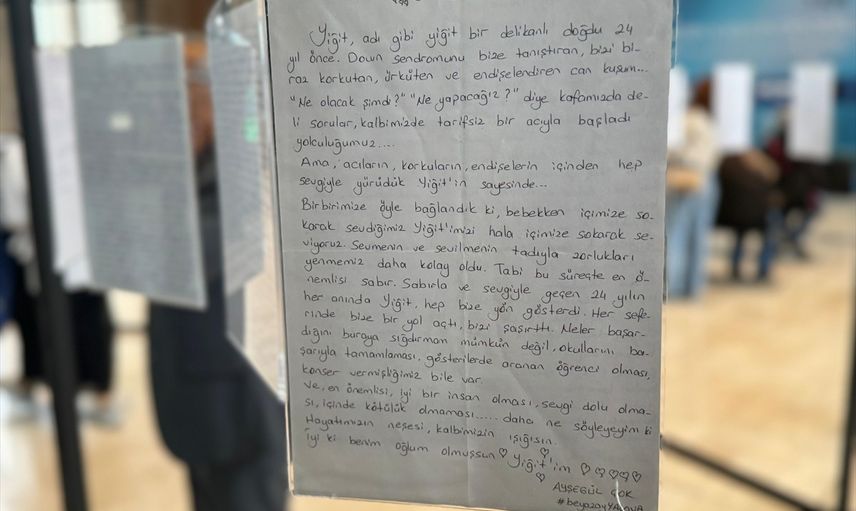 Yiğit, adı gibi yiğit bir delikanlı doğdu 24
yıl önce. Down sendromunu bize tanıştıran, bizi bi-
raz korkutan, ürküten ve endişelendiren can kuşum...
"Ne olacak şimdi?" "Ne yapacağız?" diye kafamızda de-
li sorular, kalbimizde tarifsiz bir acıyla başladı
yolculuğumuz....
Ama, acıların, korkuların, endişelerin içinden hep
sevgiyle yürüdük Yiğit'in sayesinde...
Birbirimize öyle bağlandık ki, bebekken içimize so-
karak sevdiğimiz Yiğit'imizi hala içimize sokarak se-
viyoruz. Sevmenin ve sevilmenin tadıyla zorlukları
yenmemiz daha kolay oldu. Tabi bu süreçte en ö-
nemlisi sabır. Sabırla ve sevgiyle geçen 24 yılın
her anında Yiğit, hep bize yön gösterdi. Her sefe-
rinde bize bir yol açtı, bizi şaşırttı. Neler başar-
dığını buraya sığdırmam mümkün değil, okullarını ba-
şarıyla tamamlaması, gösterilerde aranan öğrenci olması,
konser vermişliğimiz bile var.
Ve, en önemlisi, iyi bir insan olması, sevgi dolu olma-
sı, içinde kötülük olmaması..... daha ne söyleyeyim ki
Hayatımızın neşesi, kalbimizin ışığısın.
İyi ki benim oğlum olmuşsun ♡ Yiğit'im ♡♡♡♡♡
AYŞEGÜL ÇOK
#beyazayYALOVA